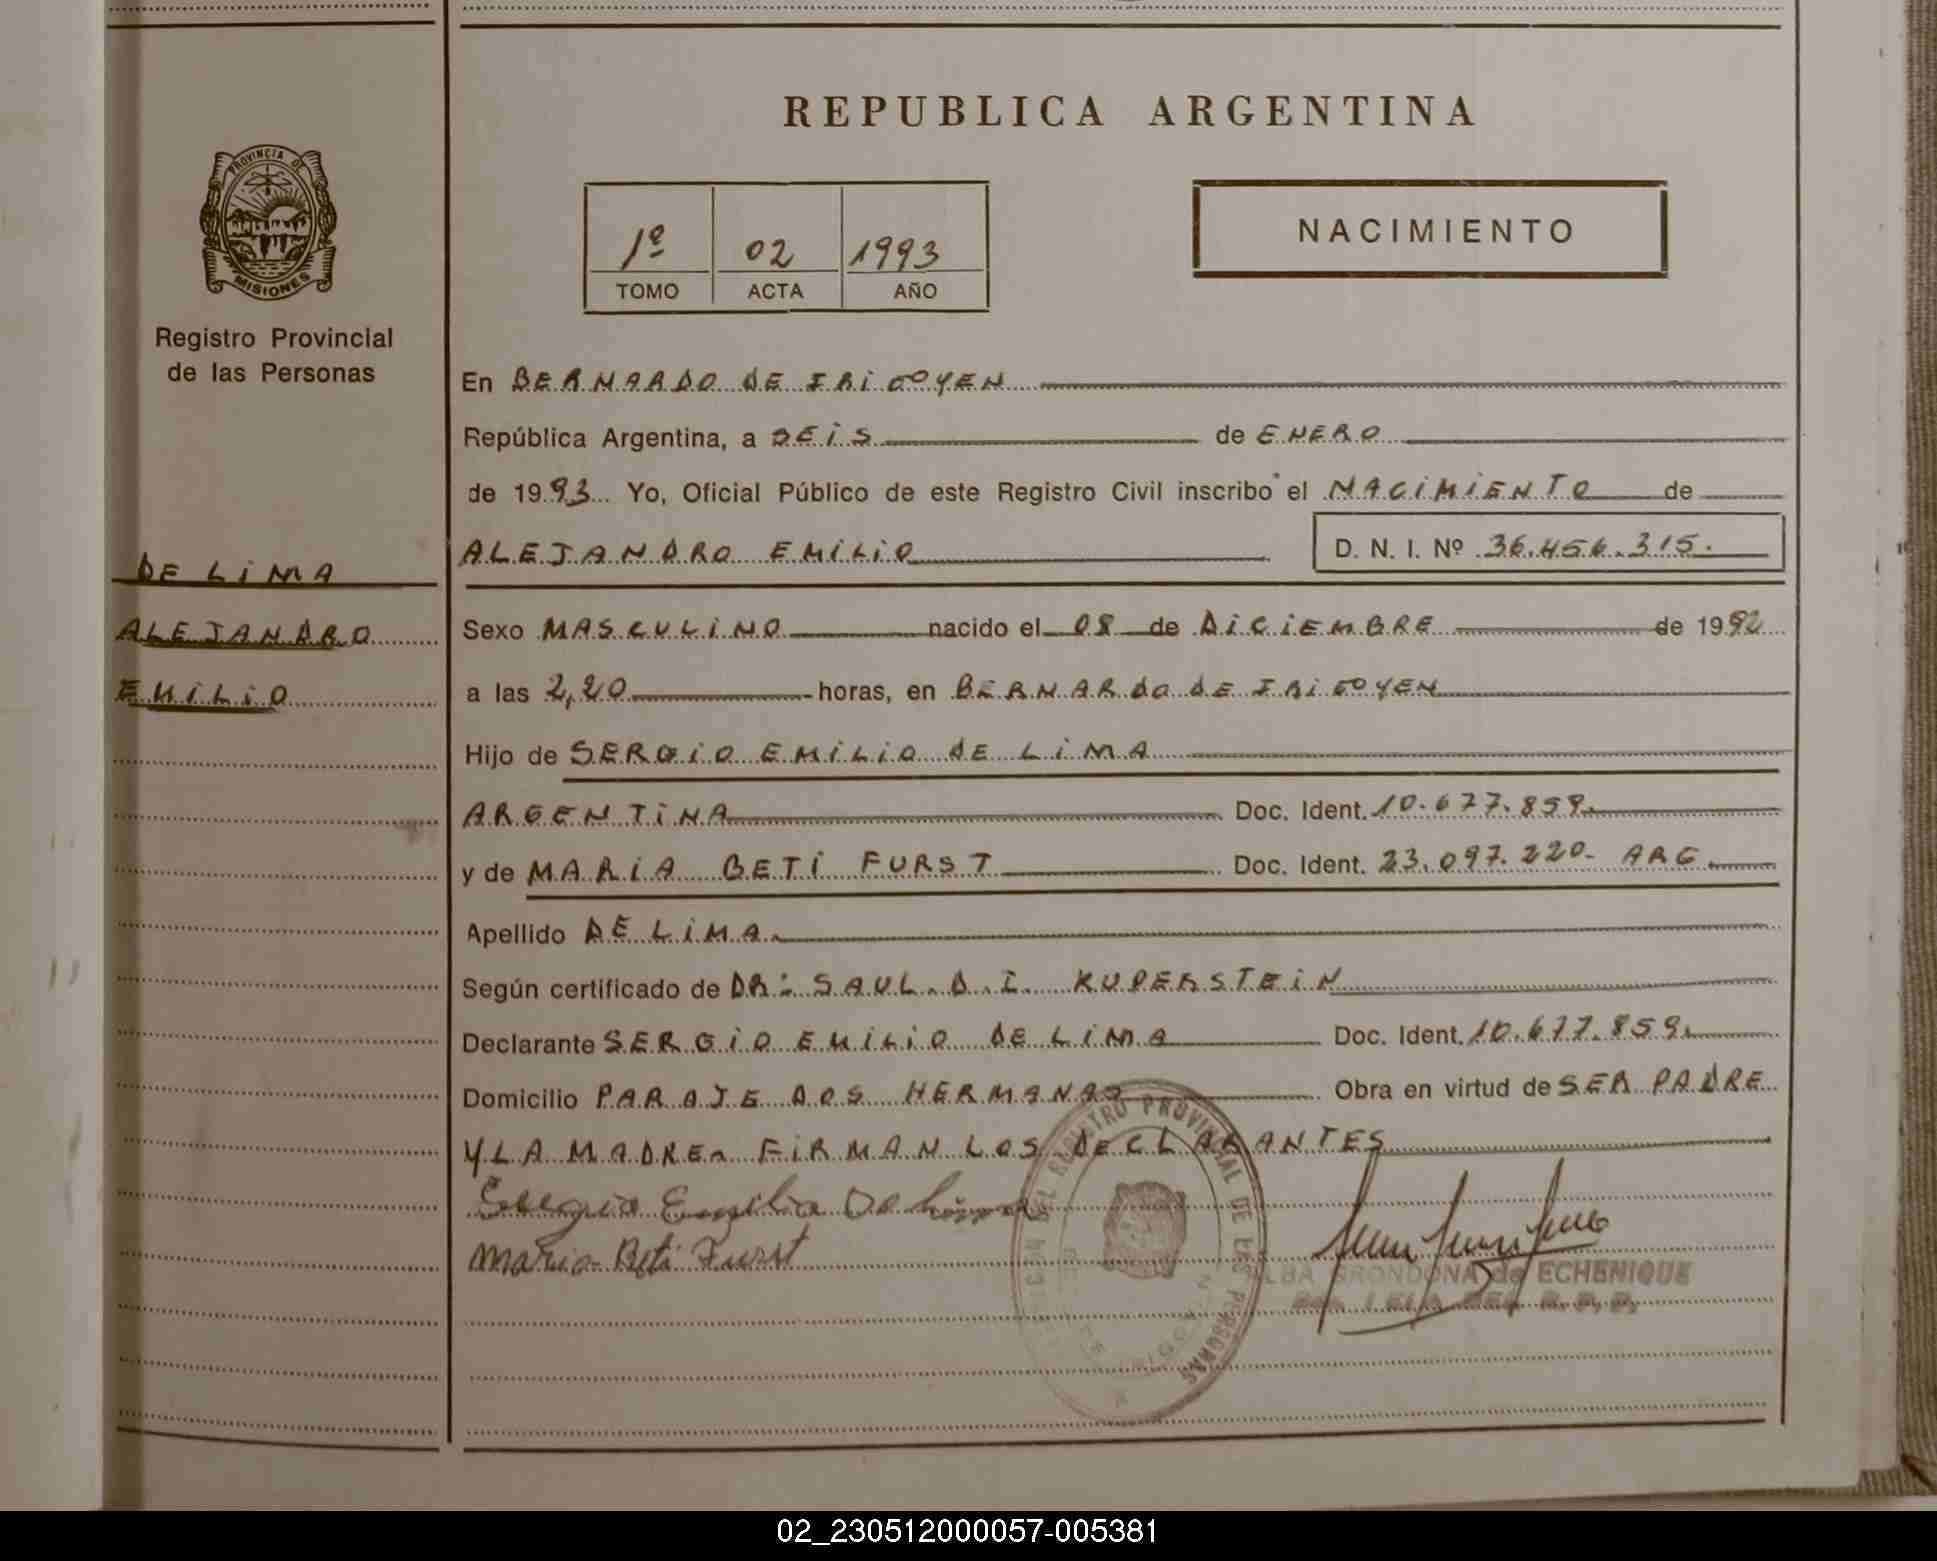 REPUBLICA ARGENTINA
PROVINCIA DE
MISIONES
1º 02 1993
TOMO ACTA AÑO
NACIMIENTO
Registro Provincial
de las Personas
En BERNARDO DE IRIGOYEN
República Argentina, a SEIS de ENERO
de 1993 Yo, Oficial Público de este Registro Civil inscribo el NACIMIENTO de
ALEJANDRO EMILIO D. N. I. Nº 36.456.315.
DE LIMA
ALEJANDRO
EMILIO
Sexo MASCULINO nacido el 08 de DICIEMBRE de 1992
a las 2,20 horas, en BERNARDO DE IRIGOYEN
Hijo de SERGIO EMILIO DE LIMA
ARGENTINA Doc. Ident. 10.677.859.
y de MARIA BETI FURST Doc. Ident. 23.097.220- ARG.
Apellido DE LIMA.
Según certificado de DR: SAUL. D. I. KUPERSTEIN
Declarante SERGIO EMILIO DE LIMA Doc. Ident. 10.677.859.
Domicilio PARAJE DOS HERMANAS Obra en virtud de SER PADRE
Y LA MADRE. FIRMAN LOS DECLARANTES
Sergio Emilio De Lima
Maria Beti Furst
REGISTRO PROVINCIAL DE LAS PERSONAS
GRONDONA de ECHENIQUE
02_230512000057-005381